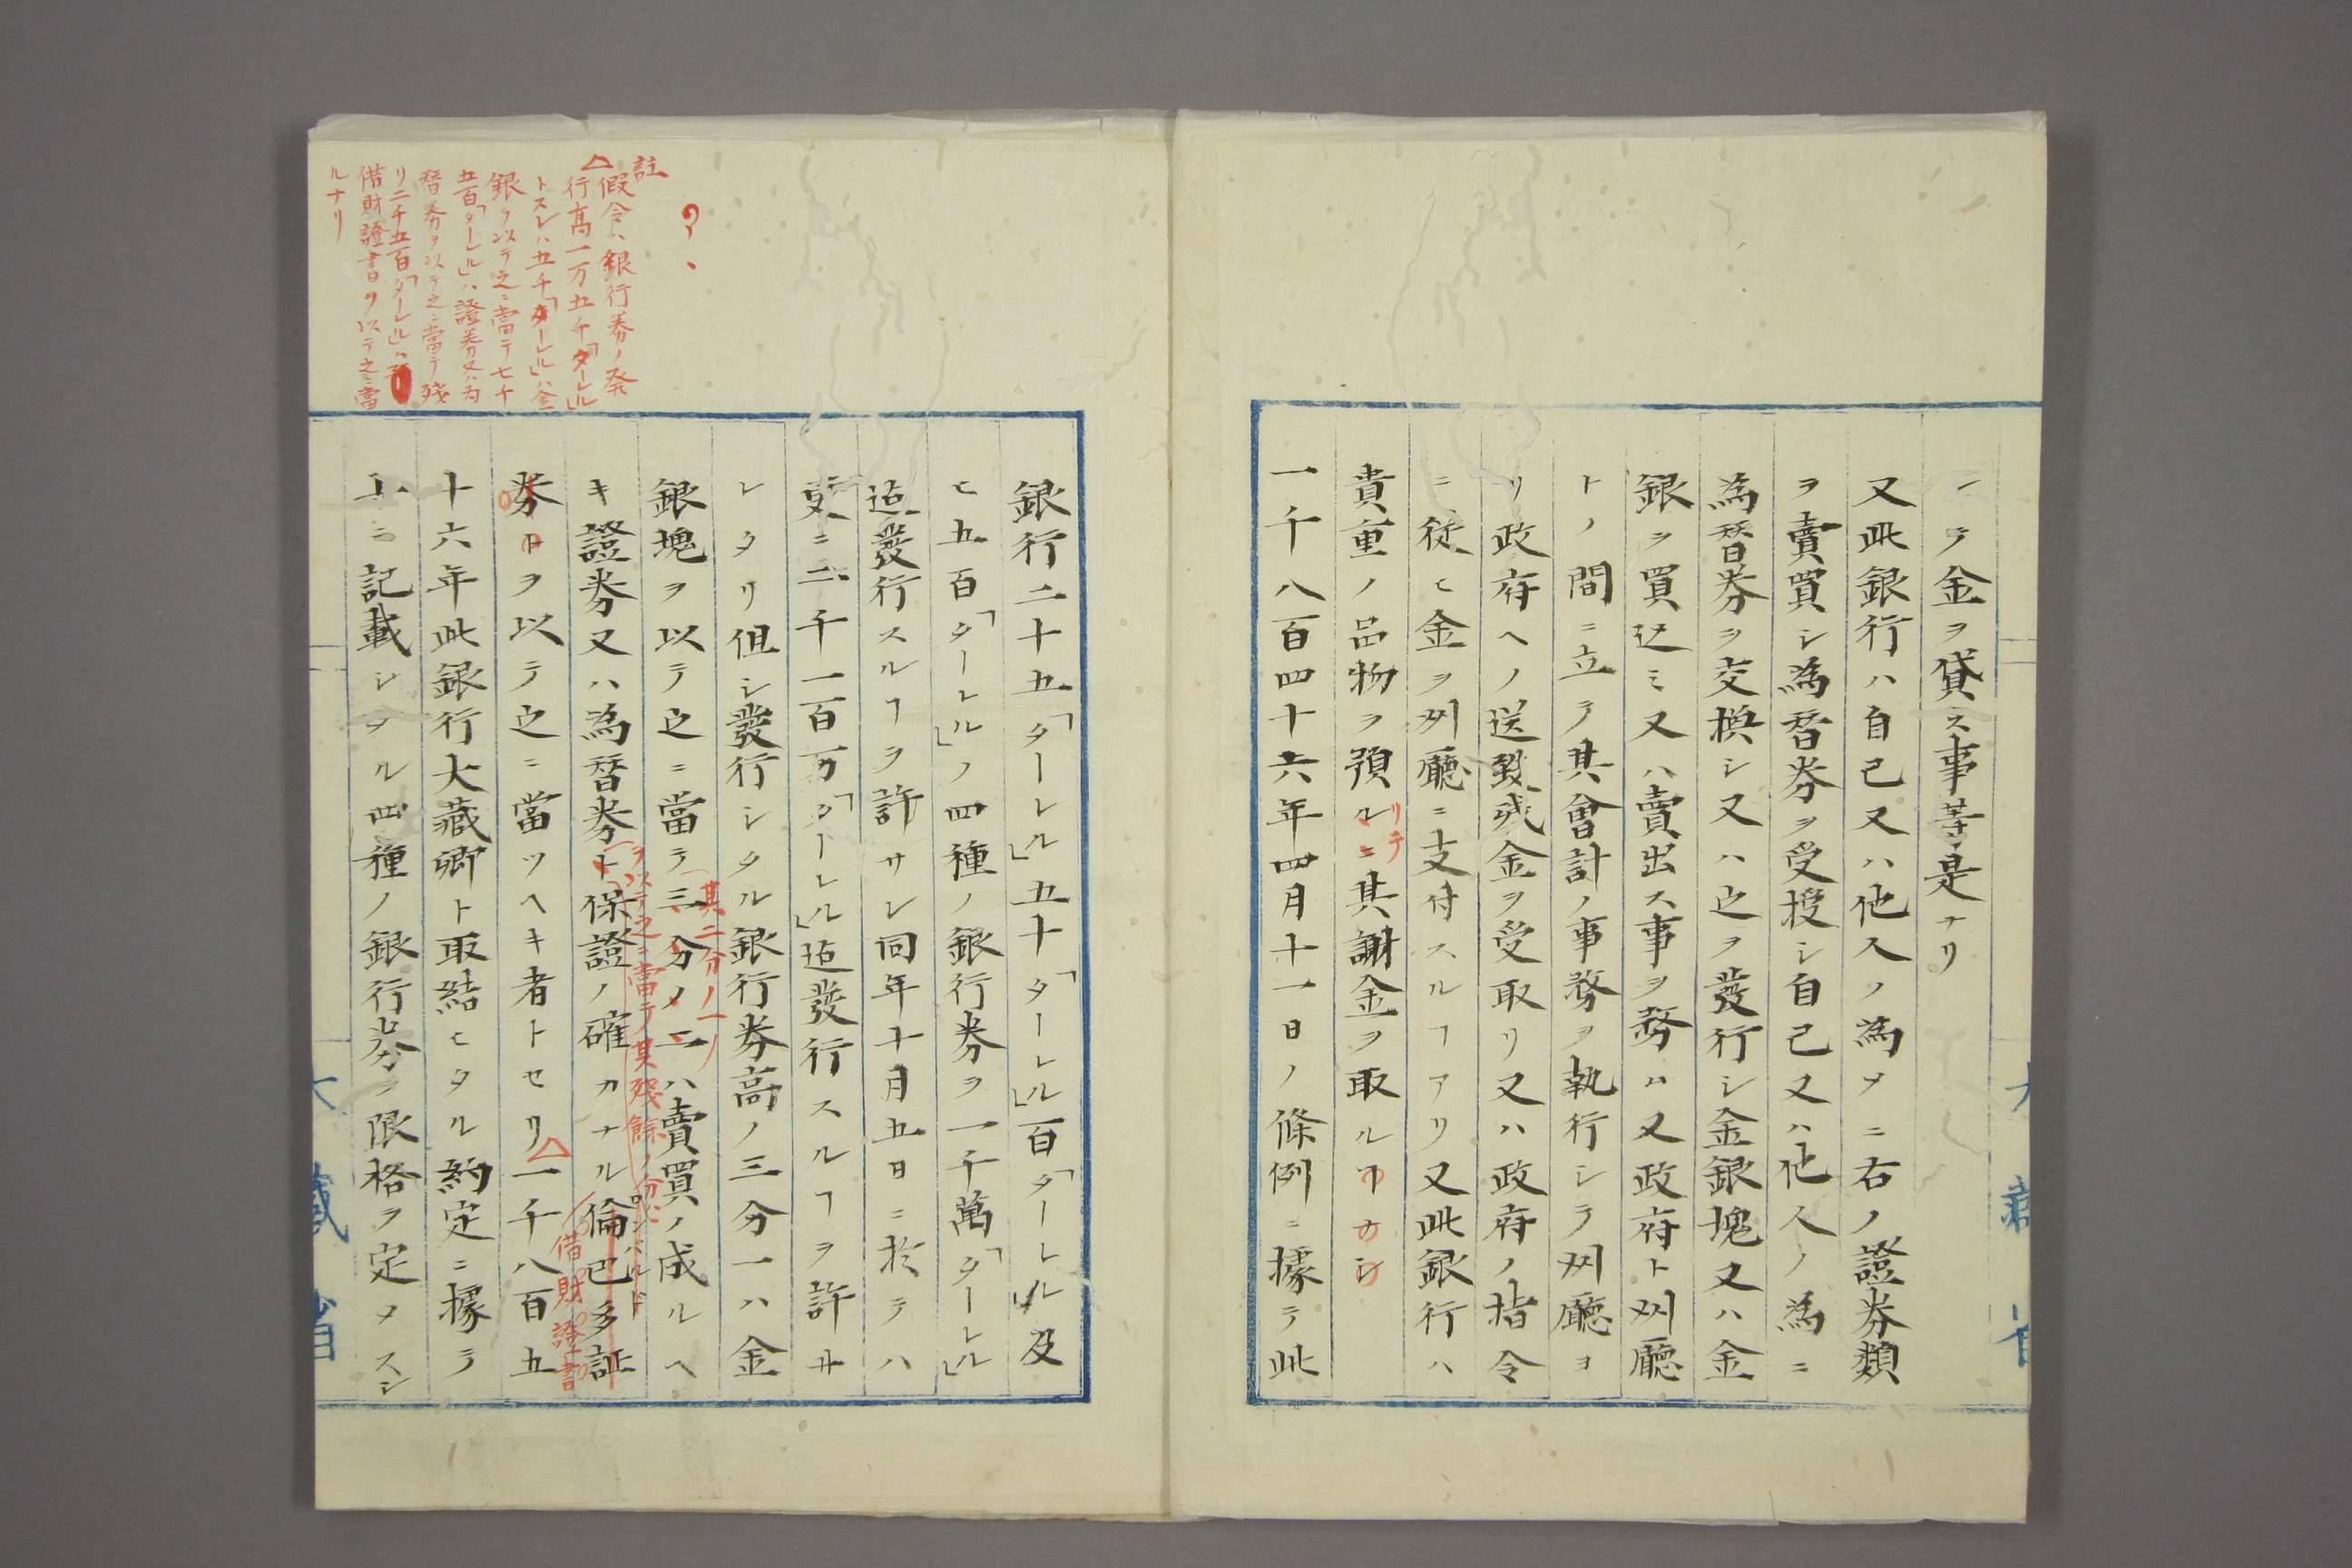 シテ金ヲ貸ス事等是ナリ
又此銀行ハ自己又ハ他人ノ為メニ右ノ證券類
ヲ賣買シ為替券ヲ受授シ自己又ハ他人ノ為ニ
為替券ヲ交換シ又ハ之ヲ發行シ金銀塊又ハ金
銀ヲ買込ミ又ハ賣出ス事ヲ務ム又政府ト州廳
トノ間ニ立テ其會計ノ事務ヲ執行シテ州廳ヨ
リ政府ヘノ送致金ヲ受取リ又ハ政府ノ指令
ニ從ヒ金ヲ州廳ニ支付スルヿアリ又此銀行ハ
貴重ノ品物ヲ預ルニ其謝金ヲ取ルヿナシ
リテ
一千八百四十六年四月十一日ノ條例ニ據テ此
銀行二十五「ターレル」五十「ターレル」百「ターレル」及
ヒ五百「ターレル」ノ四種ノ銀行券ヲ一千萬「ターレル」
迠發行スルヿヲ許サレ同年十月五日ニ於テハ
更ニ二千一百万「ターレル」迠發行スルヿヲ許サ
レタリ但シ發行シタル銀行券高ノ三分一ハ金
其二分ノ一
銀塊ヲ以テ之ニ當テ三分ノ二ハ賣買ノ成ルヘ
ヲ以テ之ニ當テ其殘餘ノ分ハ
キ證券又ハ為替券ト保證ノ確カナル倫巴多証
ロンバルド
借財證書
券トヲ以テ之ニ當ツヘキ者トセリ△一千八百五
十六年此銀行大藏卿ト取結ヒタル約定ニ據テ
上ニ記載シタル四種ノ銀行券ヲ限格ヲ定メスシ
註
△假令ハ銀行券ノ発
行髙一万五千「ターレル」
トスレハ五千「ターレル」ハ金
銀ヲ以テ之ニ當テ七千
五百「ターレル」ハ證券又ハ為
替券ヲ以テ之ニ當テ殘
リ二千五百「ターレル」ハ
借財證書ヲ以テ之ニ當
ルナリ
大藏省